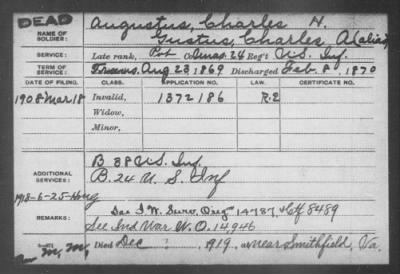 DEAD
NAME OF SOLDIER: Augustus, Charles H.
Gustus, Charles A (alias)
SERVICE: Late rank, Pvt Co. 24 Reg't U.S. Inf.
TERM OF SERVICE: Aug 23, 1869 Discharged Feb. 8, 1870
DATE OF FILING. CLASS. APPLICATION NO. LAW. CERTIFICATE NO.
1908 Mar 18 Invalid, 1372186 R.2
Widow,
Minor,
ADDITIONAL SERVICES: B 38 U.S. Inf.
B. 24 U.S. Inf
1918-6-25-
REMARKS: See I.W. Surv. Orig 14787, Ctf 8489
See Ind War W.O. 14946
Died Dec , 1919, at near Smithfield, Va.